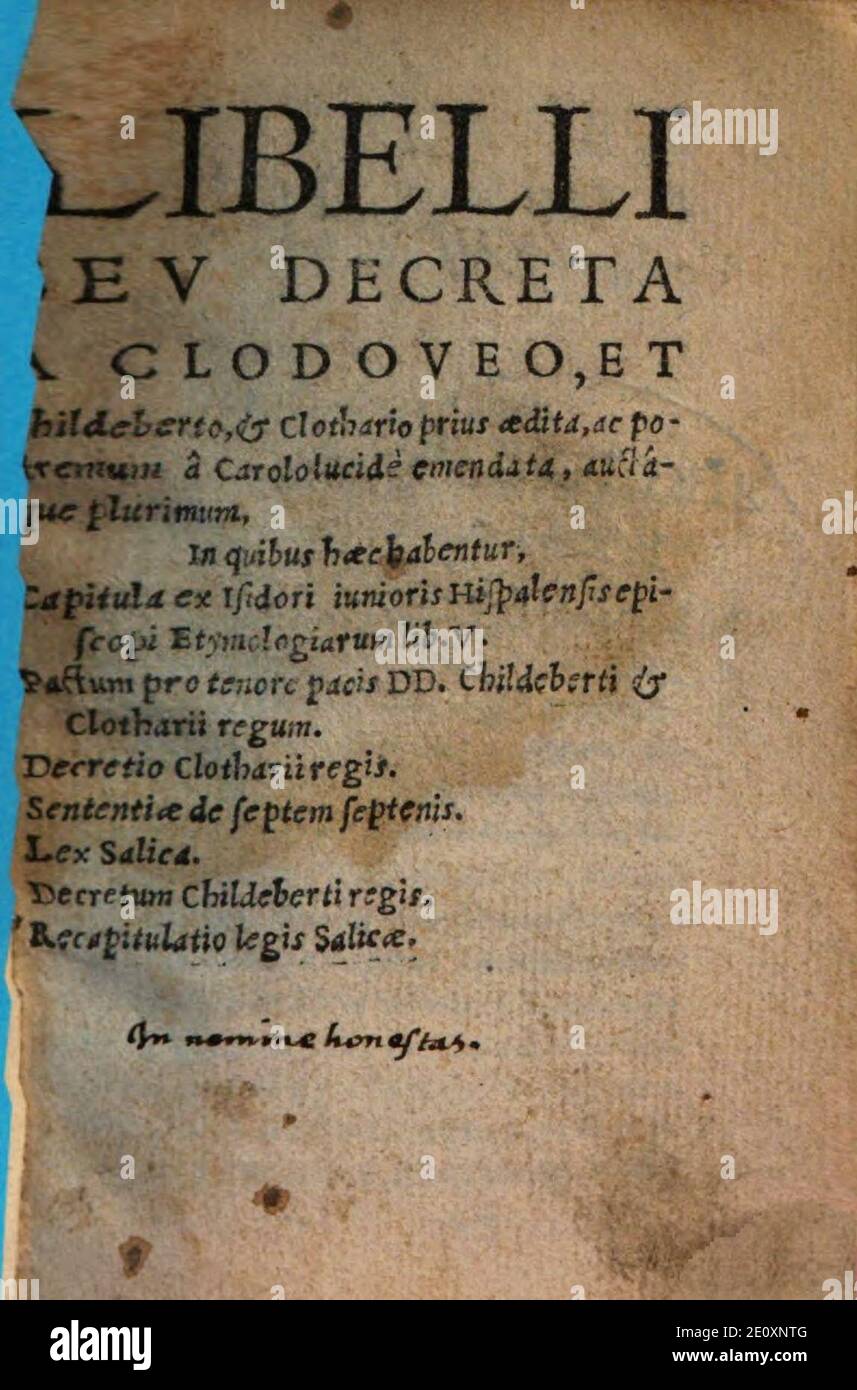 LIBELLI
SEV DECRETA
A CLODOVEO, ET
hildeberto, & Clothario prius ædita, ac po-
tremum â Carolo lucidè emendata, auctá-
que plurimum,
In quibus hæc habentur,
Capitula ex Iſidori iunioris Hiſpalenſis epi-
ſcopi Etymologiarum lib. V.
Pactum pro tenore pacis DD. Childeberti &
Clotharii regum.
Decretio Clotharii regis.
Sententiæ de ſeptem ſeptenis.
Lex Salica.
Decretum Childeberti regis.
Recapitulatio legis Salicæ.
In nomine honeſtas.
alamy
Image ID: 2E0XNTG
www.alamy.com